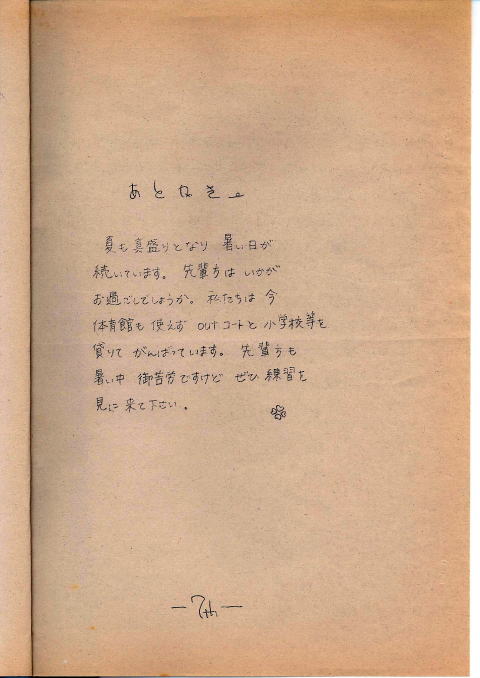 あとがき
夏も真盛りとなり 暑い日が
続いています。 先輩方は いかが
お過ごしでしょうか。 私たちは 今
体育館も 使えず outコートと 小学校等を
貸りて がんばっています。 先輩方も
暑い中 御苦労ですけど ぜひ 練習を
見に 来て下さい。
—7th—